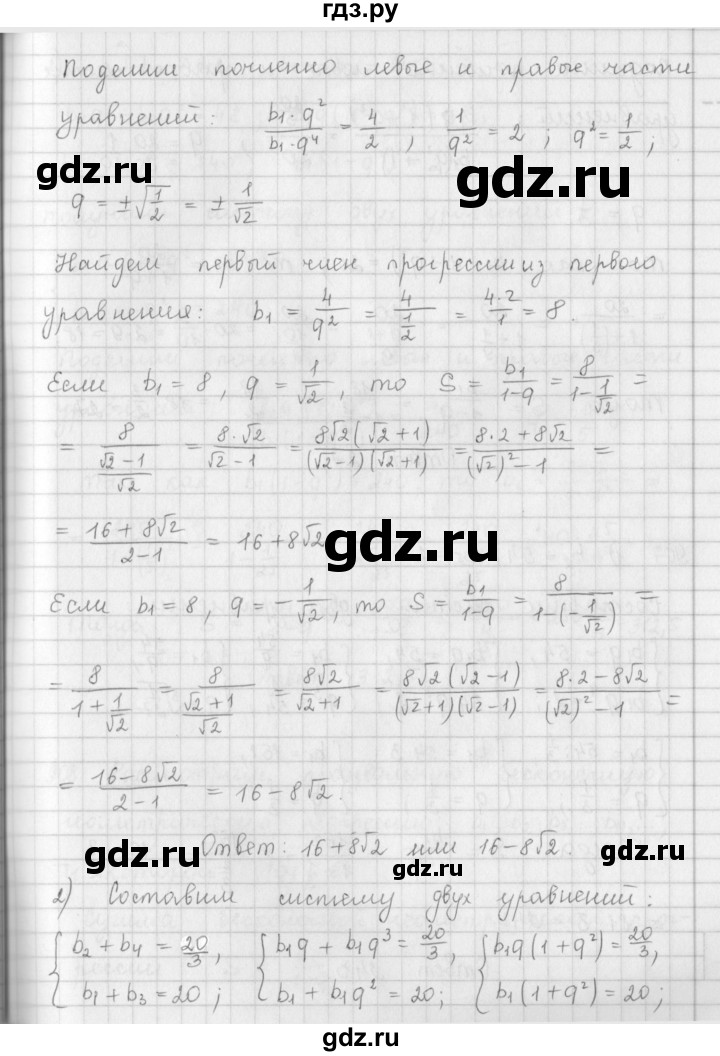 гдз.ру
Поделим почленно левые и правые части
уравнений: b₁·q²/b₁·q⁴ = 4/2, 1/q² = 2; q² = 1/2;
gdz.ru gdz.ru
q = ±√(1/2) = ± 1/√2
Найдем первый член прогрессии из первого
уравнения: b₁ = 4/q² = 4/(1/2) = 4·2/1 = 8.
Если b₁ = 8, q = 1/√2, то S = b₁/(1-q) = 8/(1 - 1/√2) =
= 8/((√2-1)/√2) = 8·√2/(√2-1) = 8√2(√2+1)/((√2-1)(√2+1)) = (8·2+8√2)/((√2)²-1) =
= (16+8√2)/(2-1) = 16+8√2
gdz.ru
Если b₁ = 8, q = -1/√2, то S = b₁/(1-q) = 8/(1-(-1/√2)) =
= 8/(1+1/√2) = 8/((√2+1)/√2) = 8√2/(√2+1) = 8√2(√2-1)/((√2+1)(√2-1)) = (8·2-8√2)/((√2)²-1) =
= (16-8√2)/(2-1) = 16-8√2.
Ответ: 16+8√2 или 16-8√2.
gdz.ru gdz.ru
2) Составим систему двух уравнений:
{ b₂ + b₄ = 20/3, { b₁q + b₁q³ = 20/3, { b₁q(1+q²) = 20/3,
b₁ + b₃ = 20; b₁ + b₁q² = 20; b₁(1+q²) = 20;
gdz.ru gdz.ru gdz.ru